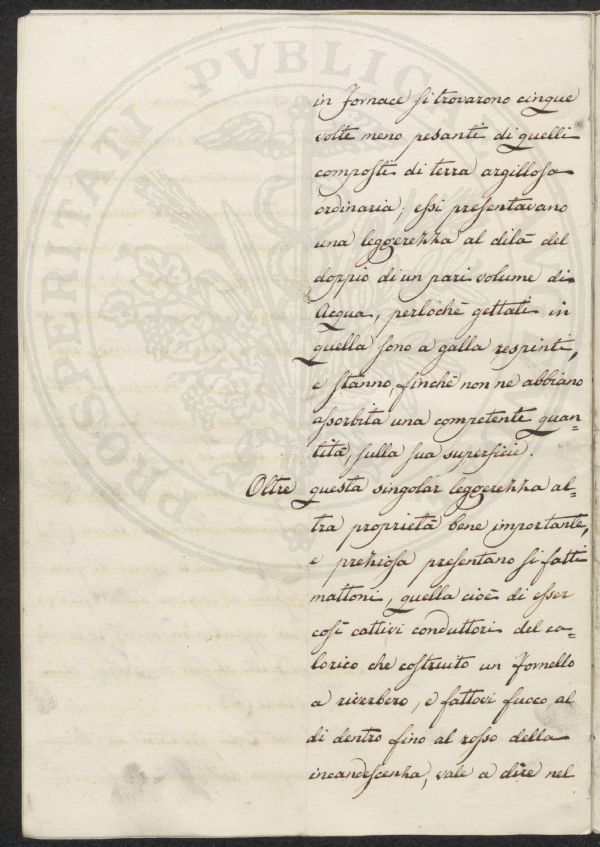 in Fornace si trovarono cinque
volte meno pesanti di quelli
composti di terra argillosa
ordinaria; essi presentavano
una leggerezza al dilà del
doppio di un pari volume di
Acqua, perlochè gettati in
quella sono a galla respinti,
e stanno, finchè non ne abbiano
assorbita una competente quan=
tità, sulla sua superficie.
Oltre questa singolar leggerezza al=
tra proprietà bene importante,
e preziosa presentano si fatti
mattoni, quella cioè di esser
così cattivi conduttori del ca=
lorico che costruito un Fornello
a riverbero, e fattovi fuoco al
di dentro fino al rosso della
incandescenza, vale a dire nel
PROSPERITATI PVBLICAE